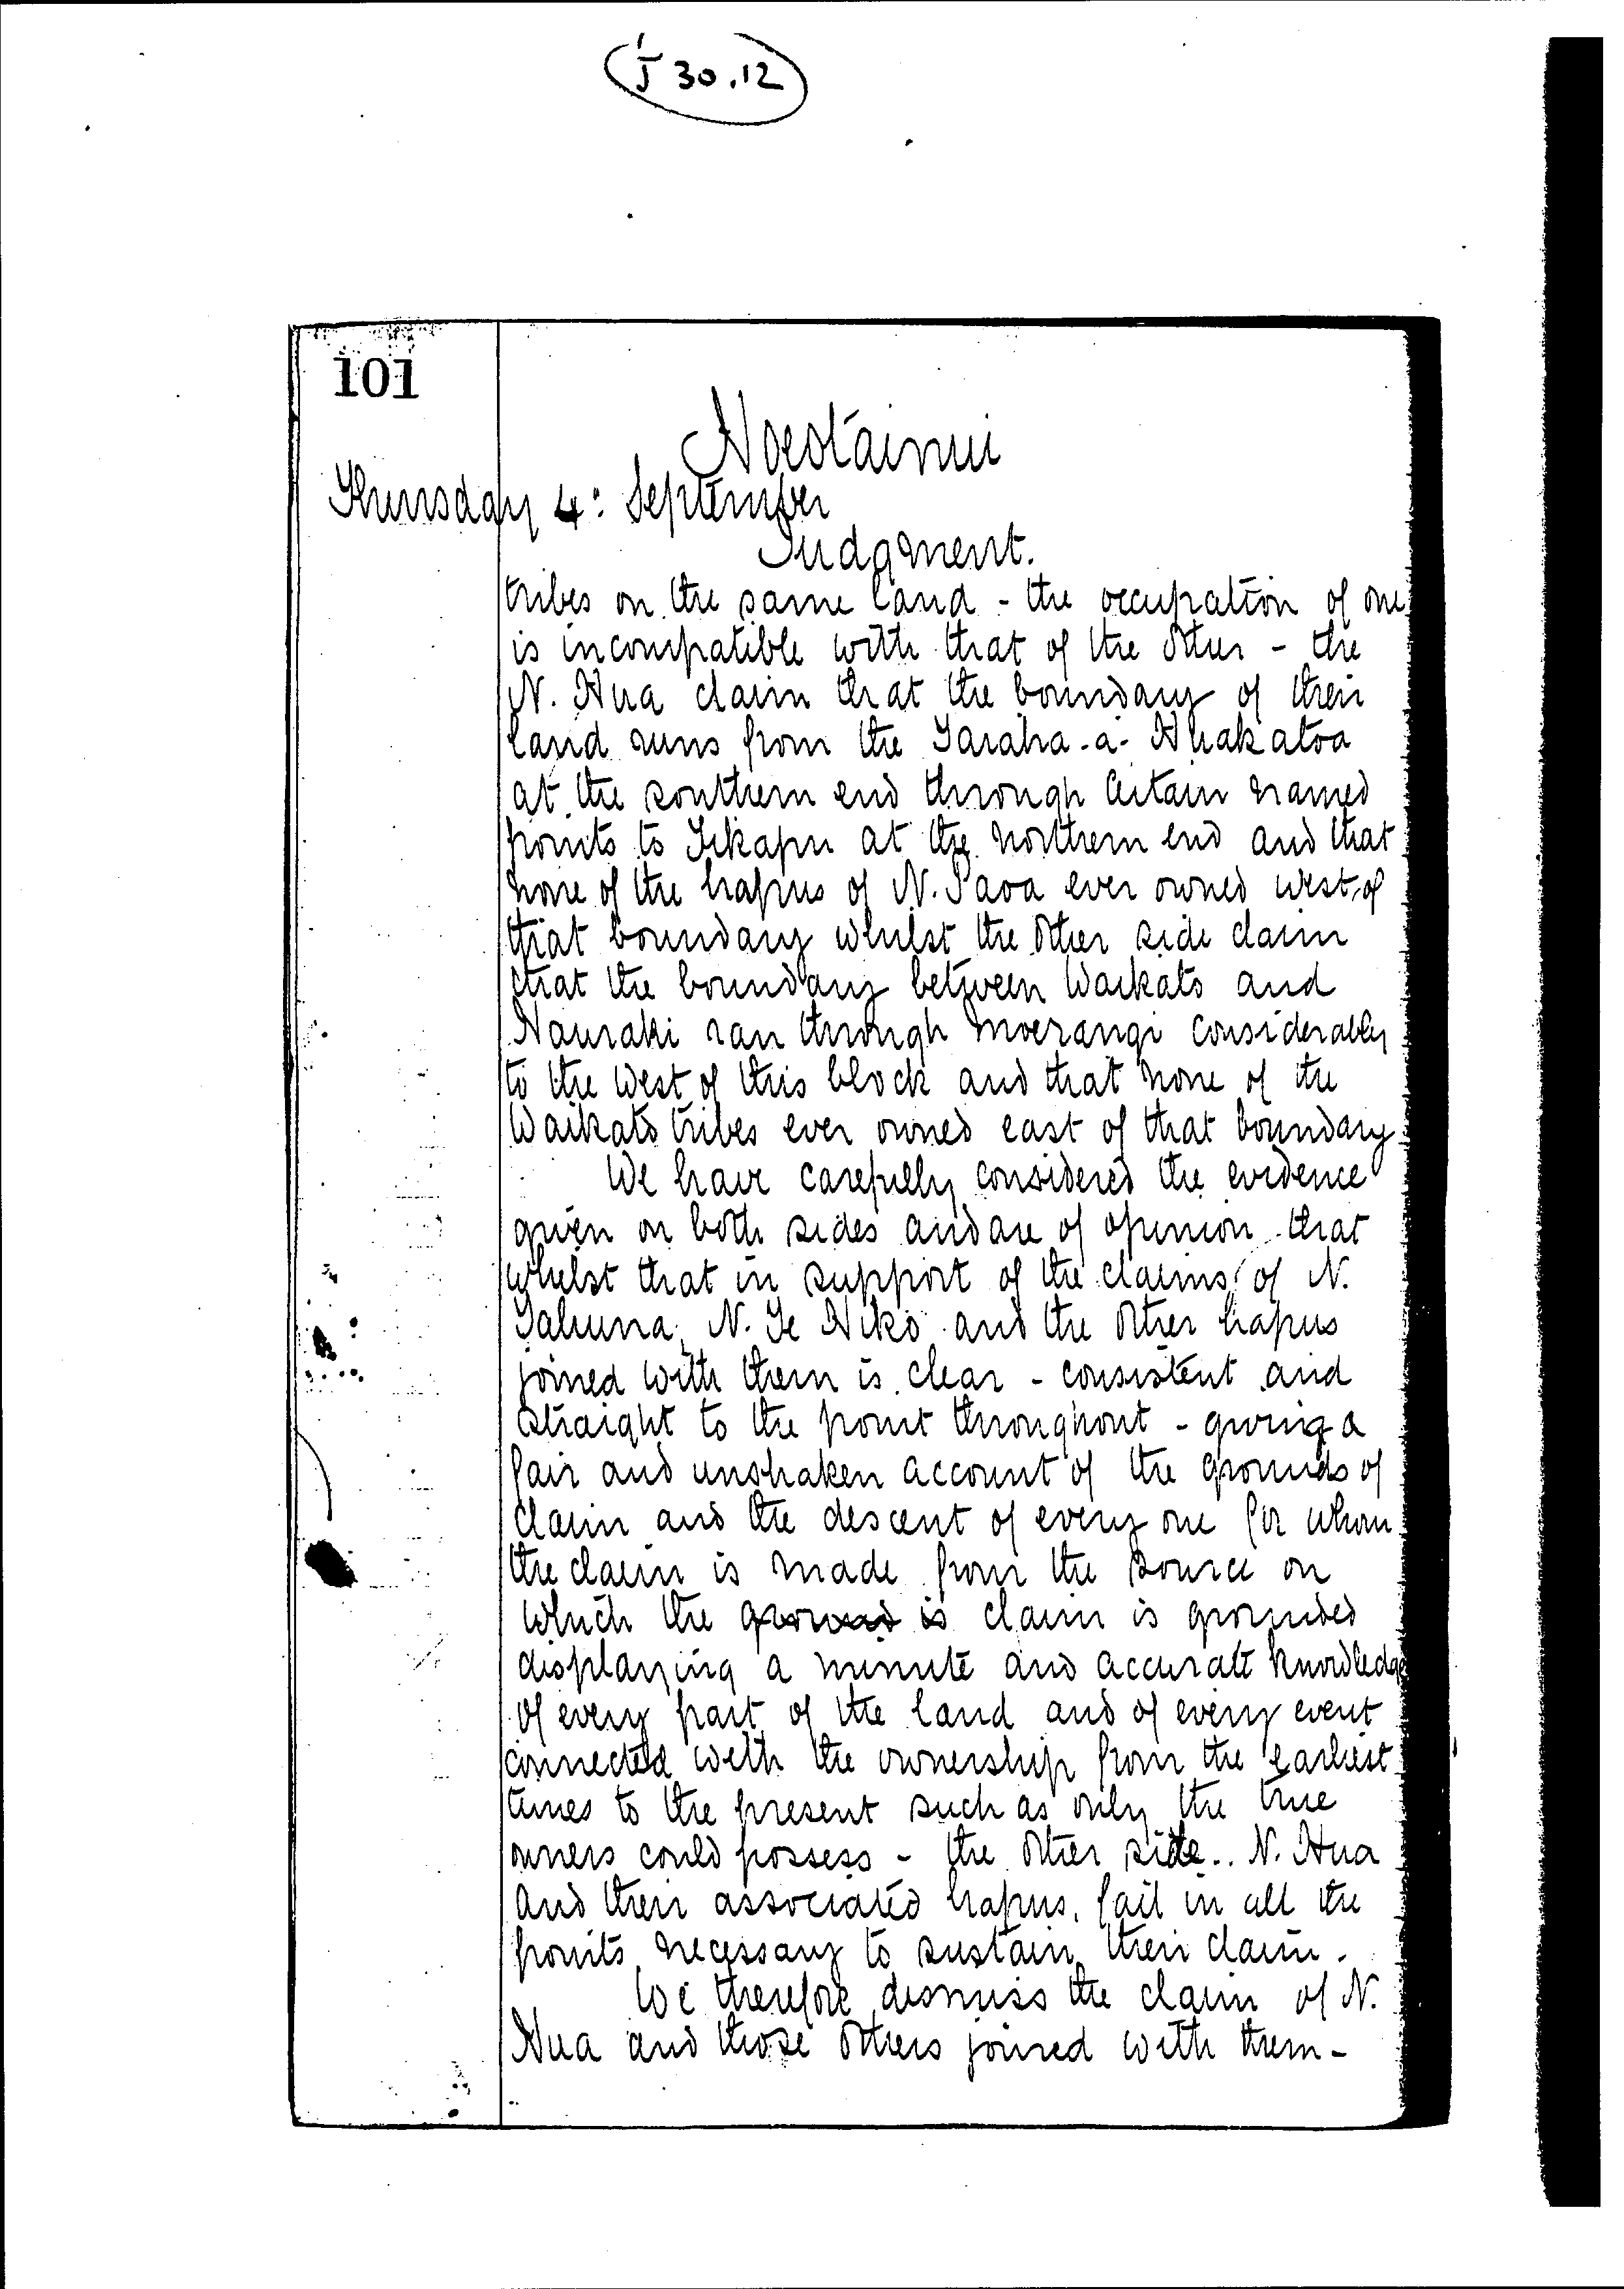 J 30.12
101
Hoeotainui
Thursday 4: September
Judgment.
tribes on the same land - the occupation of one
is incompatible with that of the other - the
N. Hua claim that the boundary of their
land runs from the Taraha-a-Whakatoa
at the southern end through certain named
points to Tikapu at the northern end and that
none of the hapus of N. Paoa ever owned west of
that boundary whilst the other side claim
that the boundary between Waikato and
Hauraki ran through Moerangi considerably
to the West of this block and that none of the
Waikato tribes ever owned east of that boundary
We have carefully considered the evidence
given on both sides and are of opinion that
whilst that in support of the claims of N.
Tahuna, N. Te Hiko and the other hapus
joined with them is clear - consistent and
straight to the point throughout - giving a
fair and unshaken account of the grounds of
claim and the descent of every one for whom
the claim is made from the source on
which the ground is claim is grounded
displaying a minute and accurate knowledge
of every part of the land and of every event
connected with the ownership from the earliest
times to the present such as only the true
owners could possess - the other side.. N. Hua
and their associated hapus, fail in all the
points necessary to sustain their claim.
We therefore dismiss the claim of N.
Hua and those others joined with them -